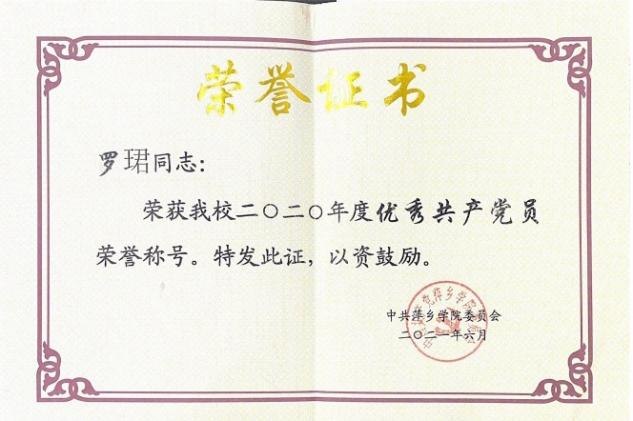 荣誉证书
罗珺同志：
荣获我校二〇二〇年度优秀共产党员
荣誉称号。特发此证，以资鼓励。
中共萍乡学院委员会
二〇二一年六月